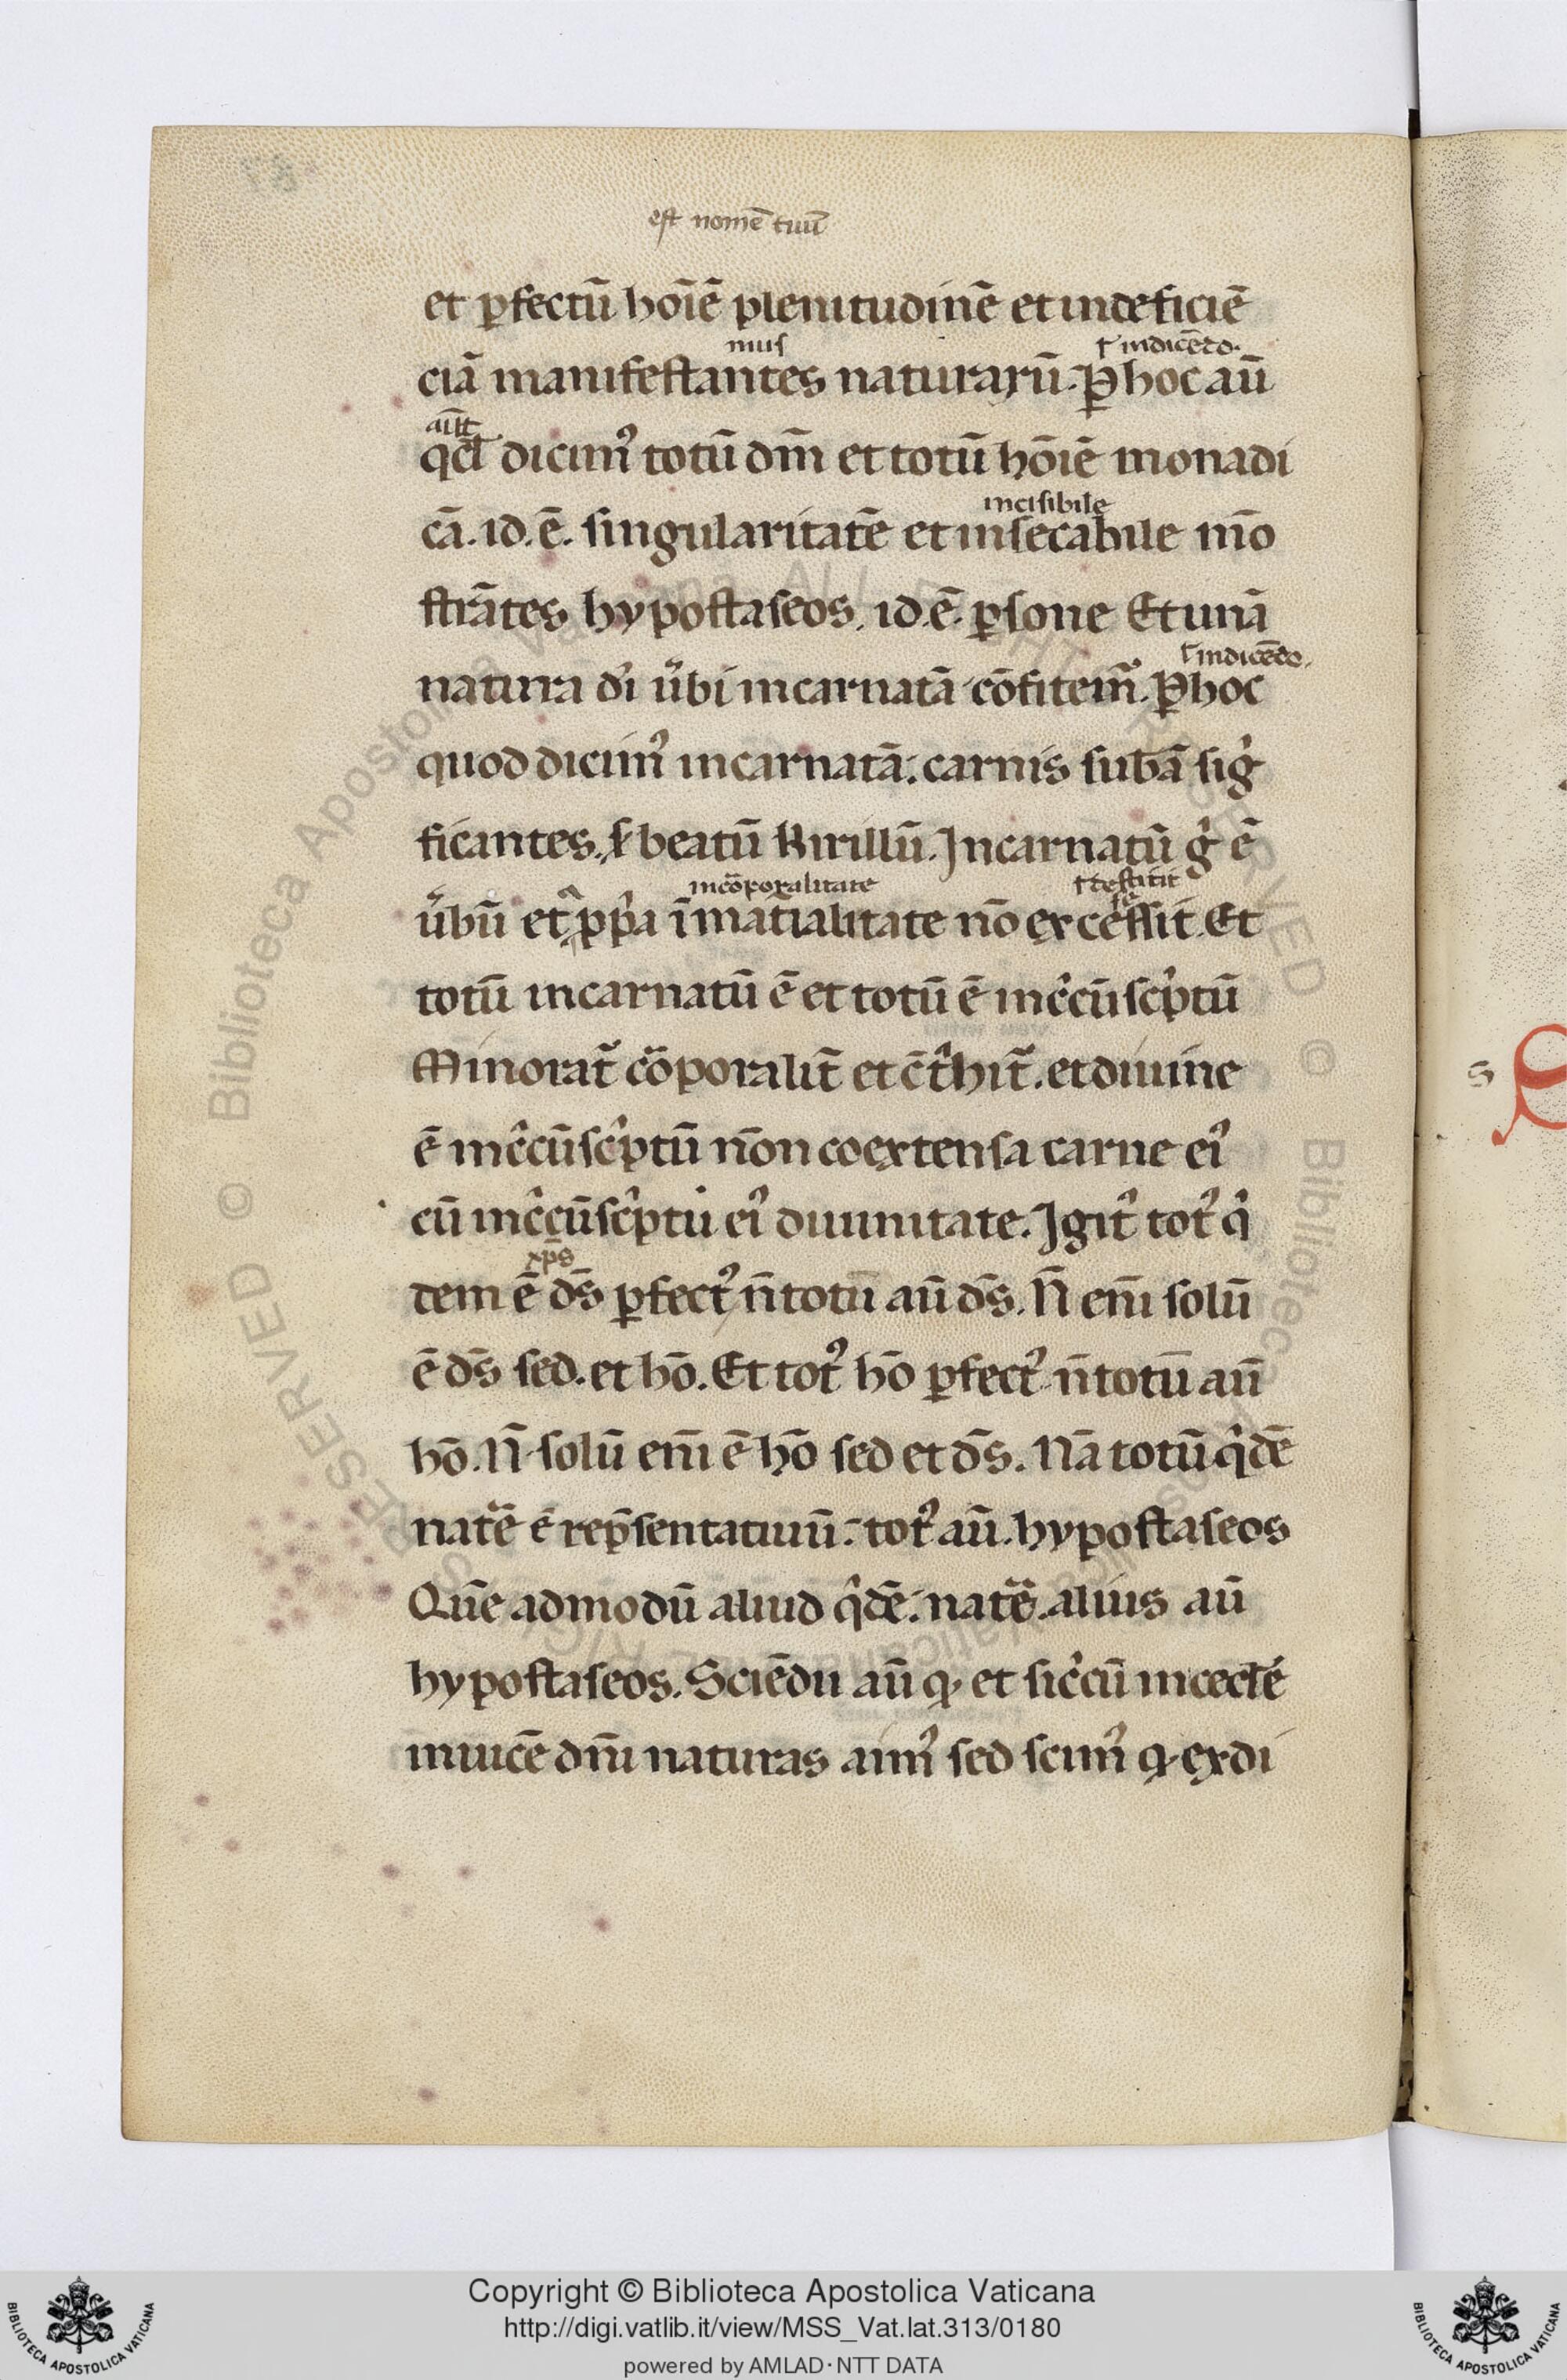 est nomē tuū
et ꝑfectū hoīē plenitudinē et indeficiē
mus ł indicēdo.
ciā manifestantes naturarū. Ꝑ hoc aū
qď dicimꝰ totū dm̄ et totū hōiē monadi
incisibile
cā. id. ē. singularitatē et insecabile mō
strātes hypostaseos. id. ē. ꝑsone Et unā
ł indicēdo.
natura dī u̾bi incarnatā cōfitem̃. Ꝑ hoc
quod dicimꝰ incarnatā. carnis subā sig̾
ficantes. beatū Kirillū. Incarnatū gͥ ē
incōporalitate ł destitit
u̾bū et ꝓpͥa īmat̄ialitate nō ex cessit. Et
se
totū incarnatū ē et totū ē incͥcūscͥptū
Minorat̃ cōporalit̄ et cͦtͣhit̃. et diuine
ē incͥcūscͥptū nōn coextensa carne eiꝰ
cū incͥcūscͥptu eiꝰ diuinitate. Igit̃ totꝰ qͥ
xp̄s
dem ē ds̄ ꝑfectꝰ n̄ totū aū ds̄. N̄ eni̅ solū
ē ds̄ sed. et hō. Et totꝰ hō ꝑfectꝰ n̄ totū aū
hō. N̄ solū eni̅ ē hō sed et ds̄. Nā totū qͥdē
natͤ ē rep̄sentatiuū. totꝰ aū. hypostaseos
Quē admodū aliud qͥdē. natͤ. alius aū
hypostaseos. Sciēdu aū ꝙ et si
inuicē dn̄i naturas aimꝰ sed scimꝰ ꝙ ex di
Copyright © Biblioteca Apostolica Vaticana
http://digi.vatlib.it/view/MSS_Vat.lat.313/0180
powered by AMLAD · NTT DATA
BIBLIOTECA APOSTOLICA VATICANA
BIBLIOTECA APOSTOLICA VATICANA